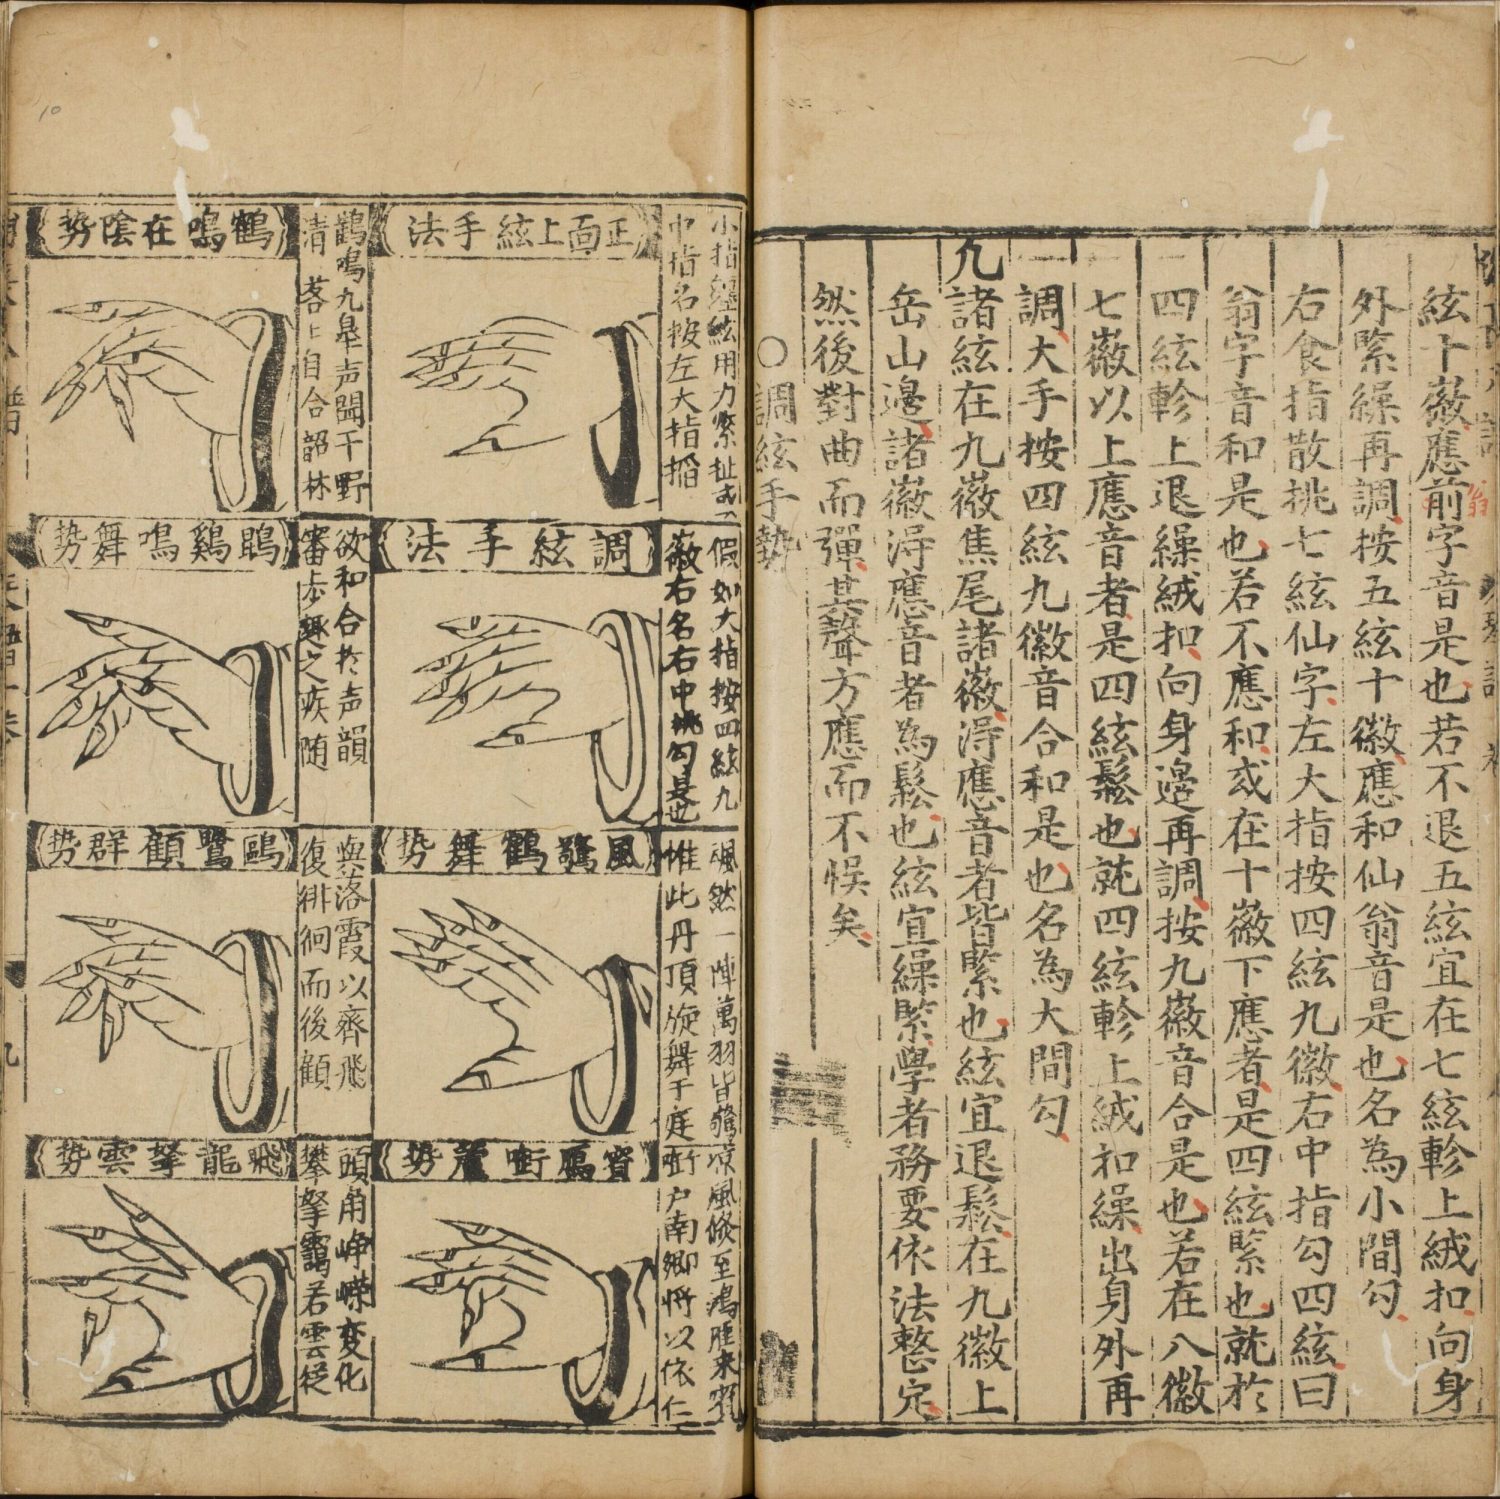 絃十徽應前字音是也若不退五絃宜在七絃軫上絨扣向身
外緊繰再調按五絃十徽應和仙翁音是也名為小間勾
右食指散挑七絃仙字左大指按四絃九徽右中指勾四絃曰
翁字音和是也若不應和或在十徽下應者是四絃緊也就於
四絃軫上退繰絨扣向身邊再調按九徽音合是也若在八徽
七徽以上應音者是四絃鬆也就四絃軫上絨扣繰出身外再
調大手按四絃九徽音合和是也名為大間勾
凡諸絃在九徽焦尾諸徽淂應音者皆緊也絃宜退鬆在九徽上
岳山邊諸徽淂應音者為鬆也絃宜繰緊學者務要依法整定
然後對曲而彈其聲方應而不悞矣
○調絃手勢
小指纏絃用力緊扯
中指名按左大指搯
正面上絃手法
鶴鳴九皋声聞于野
清 上自合韶林
鶴鳴在陰势
假如大指按四絃九
徽右名右中挑勾是也
調絃手法
欲和合於声韻
審步趍之疾随
鵾鷄鳴舞势
颯然一陣萬羽皆
惟此丹頂旋舞于庭
風驚鶴舞势
與落霞以齊飛
復徘徊而後顧
鷗鷺顧群势
凉風倐至鴻雁来賓
衡户南鄉将以依仁
賓鴈啣蘆势
頭角崢嶸变化
攀拏靄若雲從
飛龍拏雲势